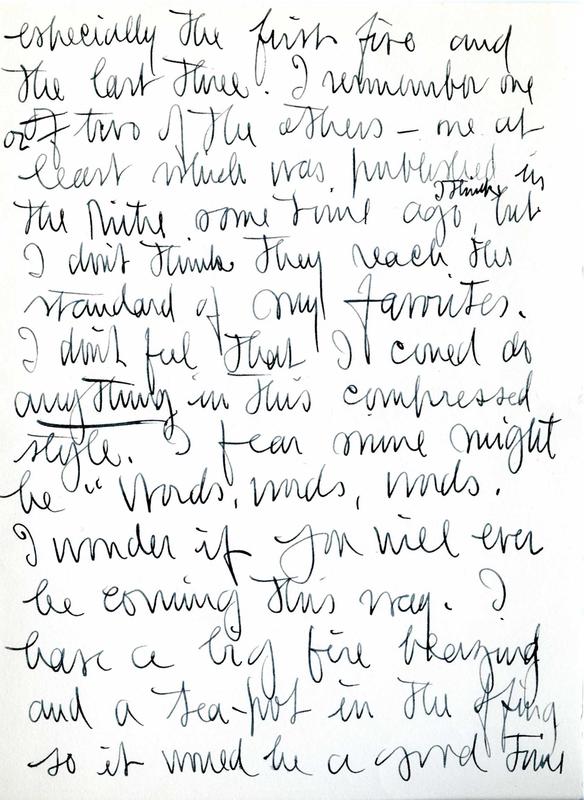 especially the first five and
the last three. I remember one
or two of the others – one at
least which was published in
the Mitre some time ago, I think, but
I don't think they reach the
standard of my favorites.
I don't feel that I could do
anything in this compressed
style. I fear mine might
be "Words, words, words.
I wonder if you will ever
be coming this way. I
have a big fire blazing
and a tea-pot in the offing
so it would be a good time